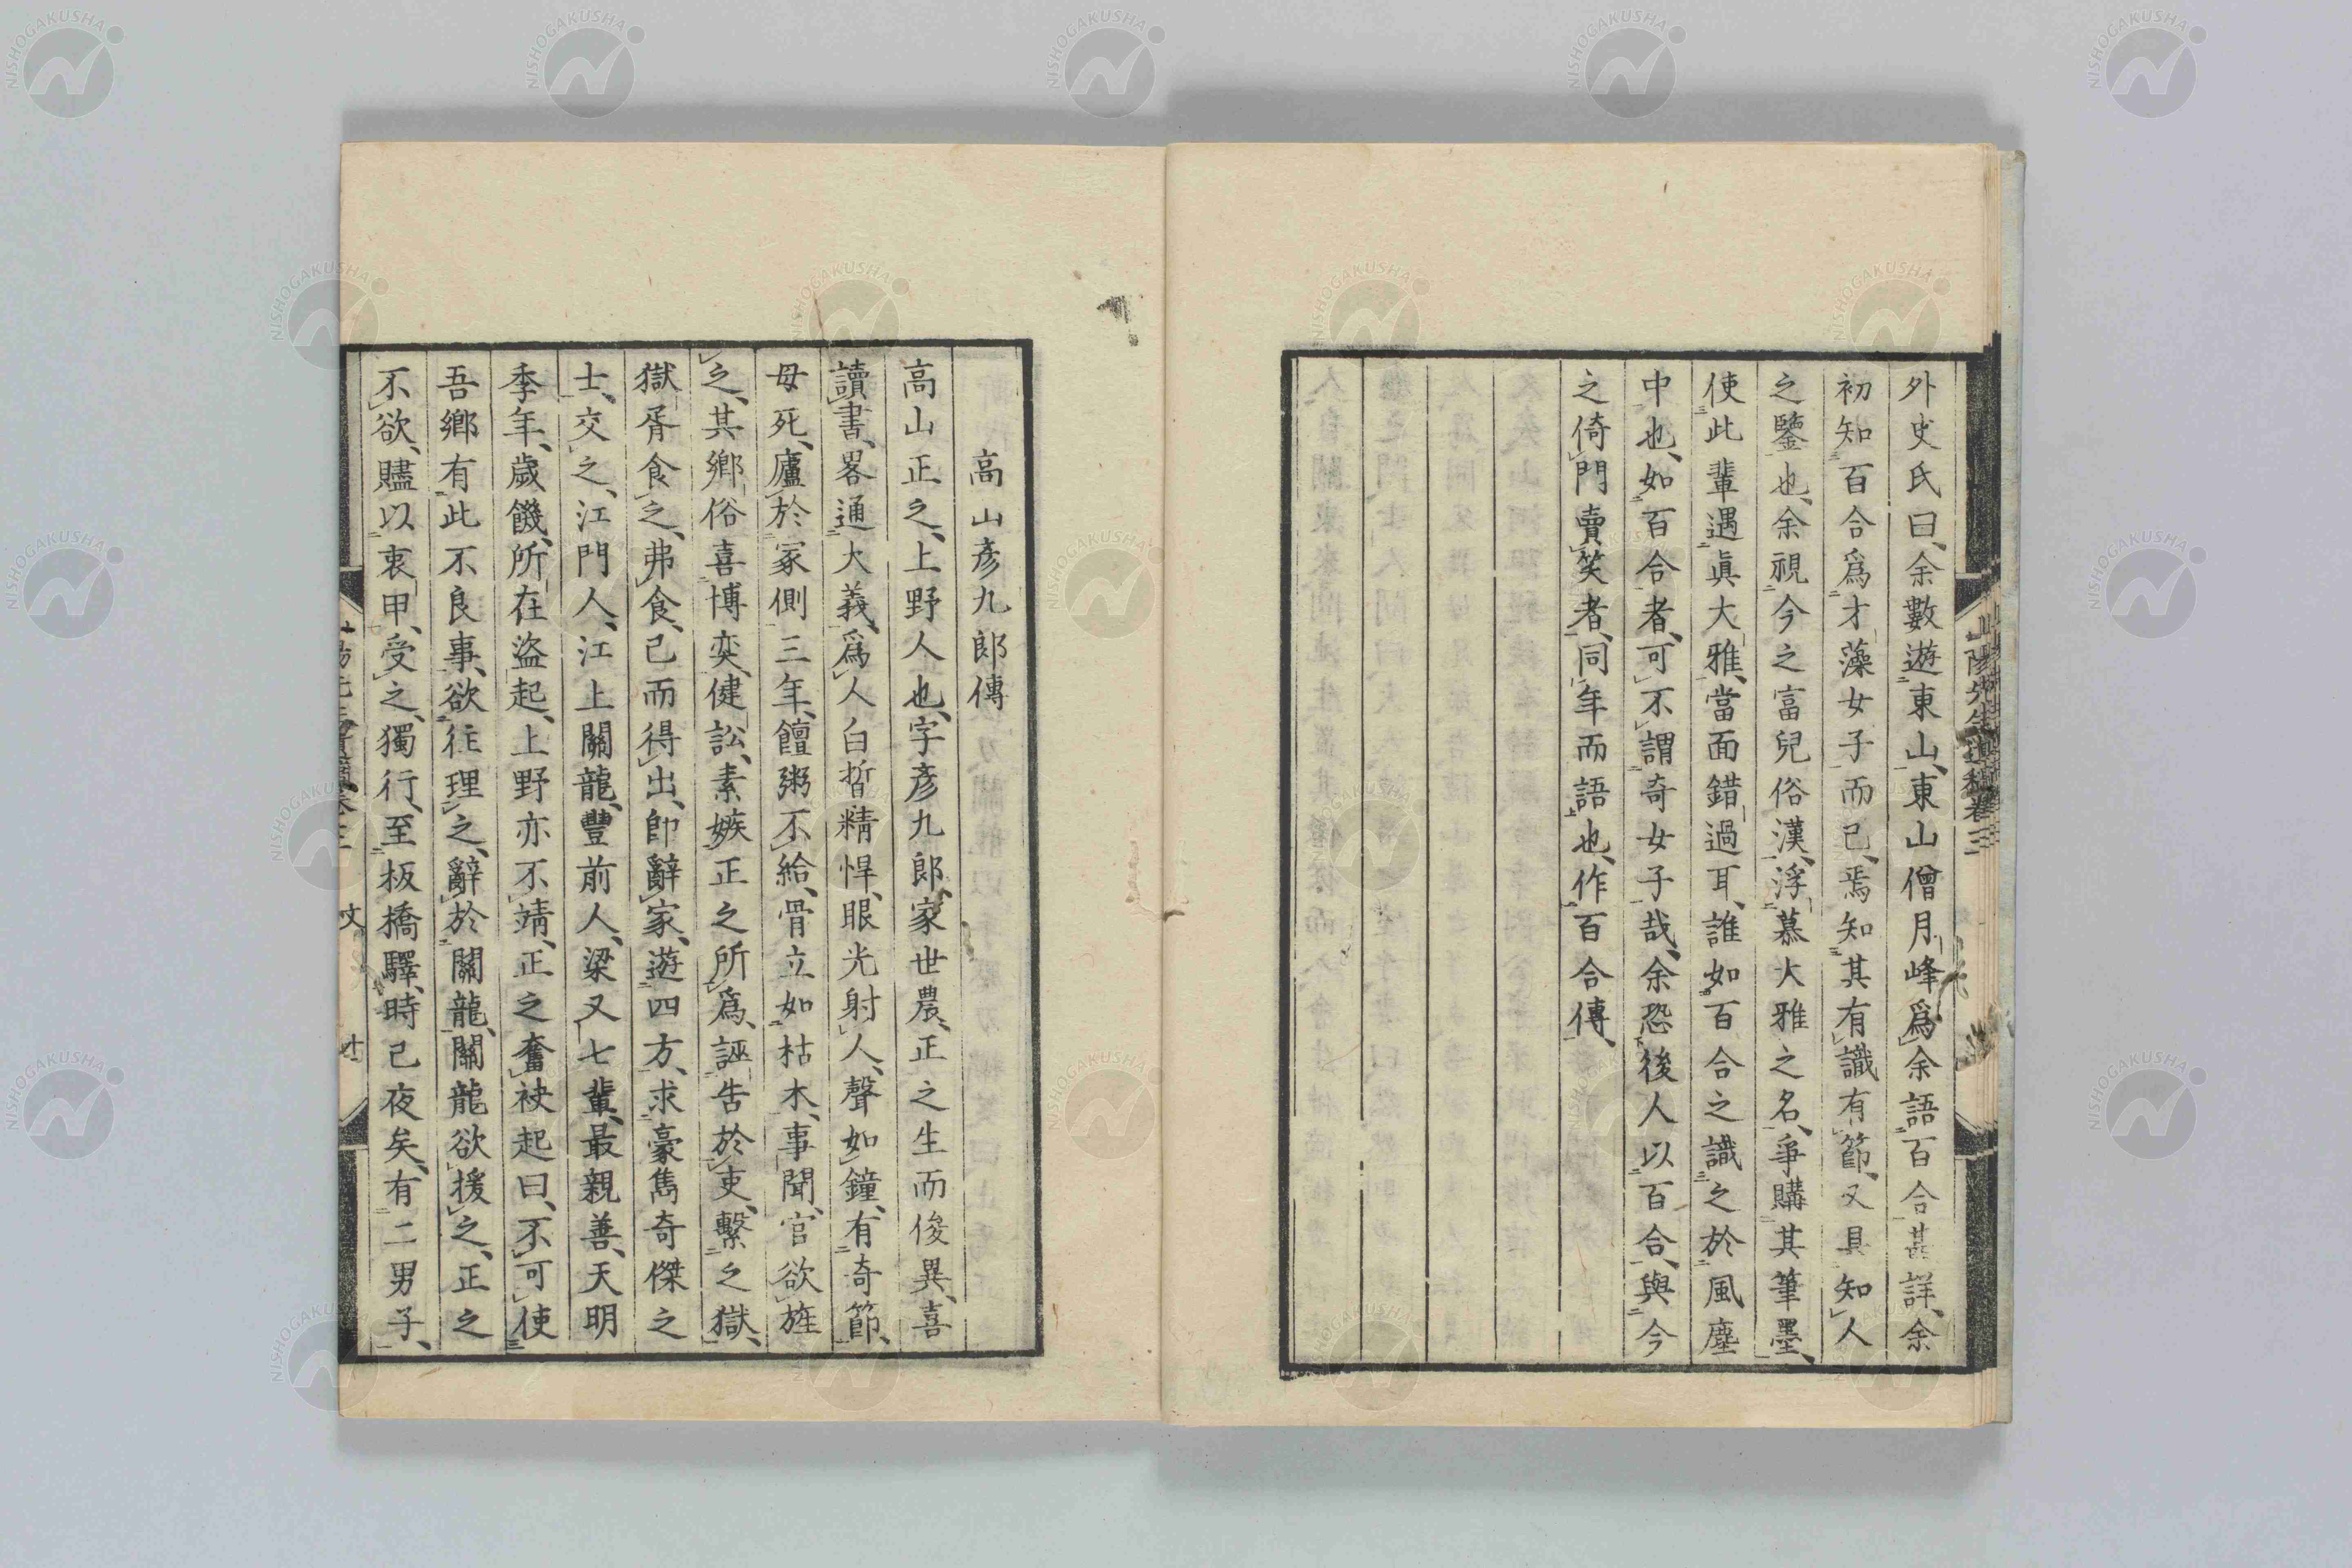 外史氏曰、余數遊東山、東山僧月峰爲余語百合甚詳、余
初知百合爲才藻女子而已、焉知其有識有節、又具知人
之鑒也、余視今之富兒俗漢、浮慕大雅之名、爭購其筆墨、
使此輩遇眞大雅、當面錯過耳、誰如百合之識之於風塵
中也、如百合者、可不謂奇女子哉、余恐後人以百合、與今
之倚門賣笑者、同年而語也、作百合傳、
山陽先生遺稿卷三
高山彥九郎傳
高山正之、上野人也、字彥九郎、家世農、正之生而俊異、喜
讀書、畧通大義、爲人白晳精悍、眼光射人、聲如鐘、有奇節、
母死、廬於冢側三年、饘粥不給、骨立如枯木、事聞、官欲旌
之、其鄉俗喜博奕、健訟、素嫉正之所爲、誣告於吏、繫之獄、
獄胥食之、弗食、已而得出、卽辭家、遊四方、求豪雋奇傑之
士、交之、江門人、江上關龍、豐前人、梁又七輩、最親善、天明
季年、歲饑、所在盜起、上野亦不靖、正之奮袂起曰、不可使
吾鄉有此不良事、欲往理之、辭於關龍、關龍欲援之、正之
不欲、贐以衷甲、受之、獨行、至板橋驛、時已夜矣、有二男子、
文
十一
NISHOGAKUSHA